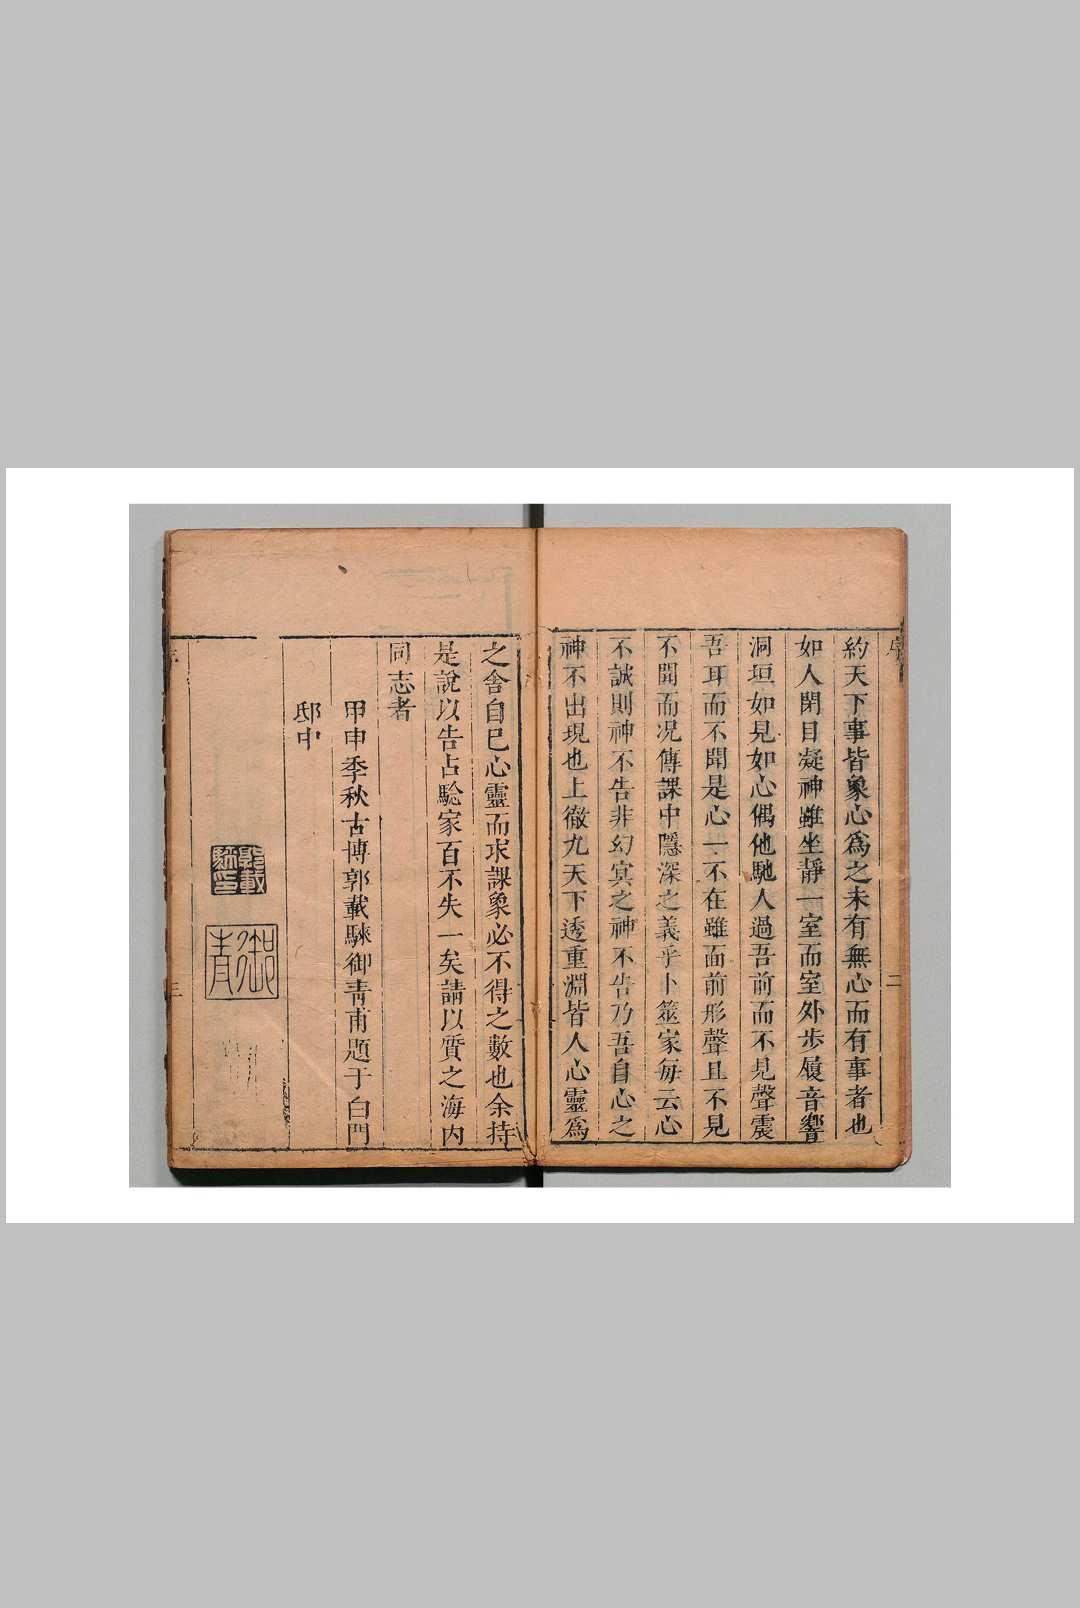 序
二
約天下事皆象心爲之未有無心而有事者也
如人閉目凝神雖坐靜一室而室外步履音響
洞垣如見如心偶他馳人過吾前而不見聲震
吾耳而不聞是心一不在雖面前形聲且不見
不聞而况傳課中隱深之義乎卜筮家每云心
不誠則神不告非幻冥之神不告乃吾自心之
神不出現也上徹九天下透重淵皆人心靈爲
之舍自巳心靈而求課象必不得之數也余持
是說以告占驗家百不失一矣請以質之海内
同志者
甲申季秋古博郭載騋御靑甫題于白門
邸中
郭載騋印
御青
三